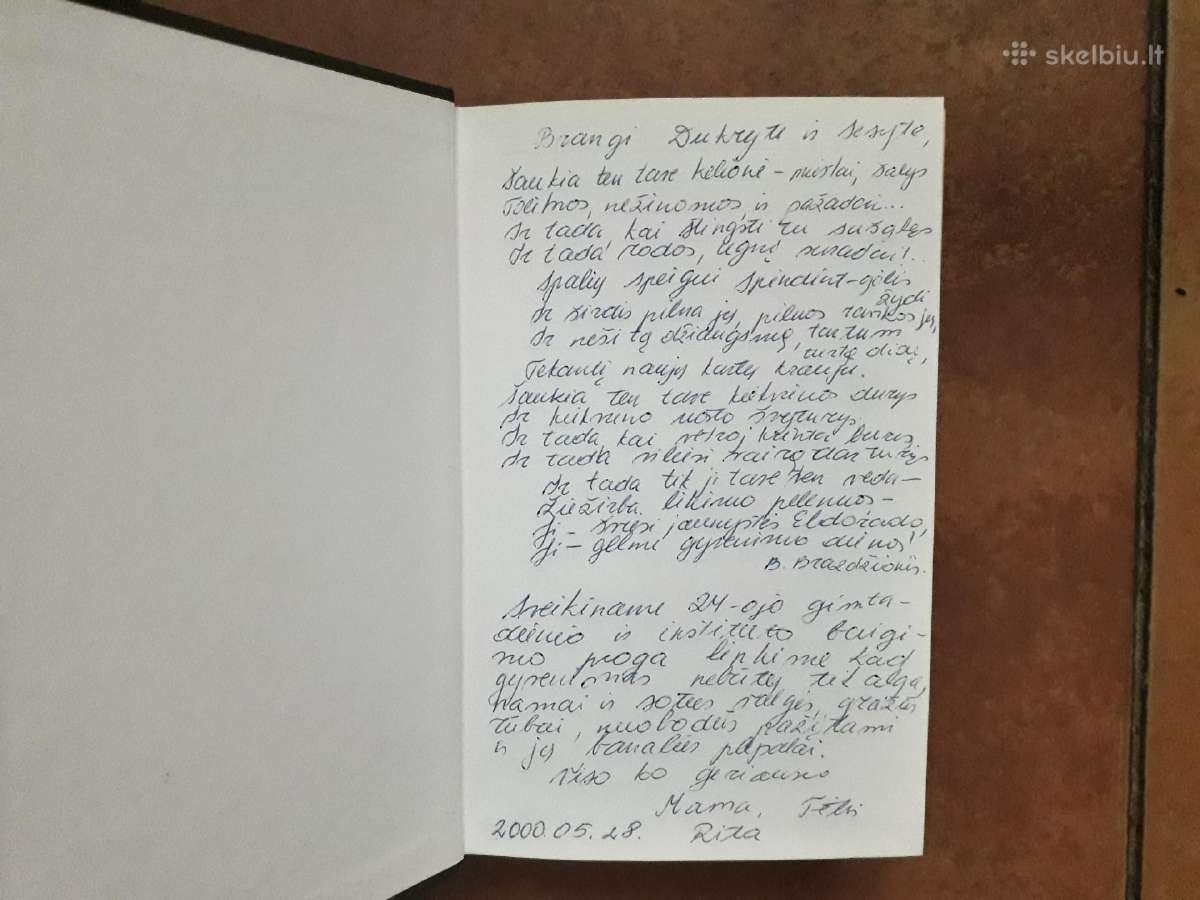 skelbiu.lt
Brangi Dukryte ir Sesyte,
Šaukia ten tave kelionė – miestai, šalys
Tolimos, nežinomos, ir pažadai...
Ir tada, kai stingsti tu sušalęs
Ir tada, rodos, ugnį suradai!..
Spalių speigui spindint – gėlės
žydi
Ir širdis pilna jų, pilnos rankos jų,
Ir neši tą džiaugsmą, tartum
turtą didį,
Tekantį naujų kartų krauju.
Šaukia ten tave kiekvienos durys
Ir kiekvieno uosto švyturys
Ir tada, kai vėtroj krinta burės
Ir tada viliesi vairą dar turįs
Ir tada tik ji tave ten veda –
Žiežirba likimo pelenuos –
Ji – šviesi jaunystės Eldorado,
Ji – gelmė gyvenimo dienos!
B. Brazdžionis.
Sveikiname 24-ojo gimta-
dienio ir instituto baigi-
mo proga linkime kad
gyvenimas nebūtų tik alga,
namai ir sotus valgis, gražūs
rūbai, nuobodūs pažįstami
ir jų banalūs plepalai.
Viso ko geriausio
Mama, Tėtis
2000.05.28. Rita